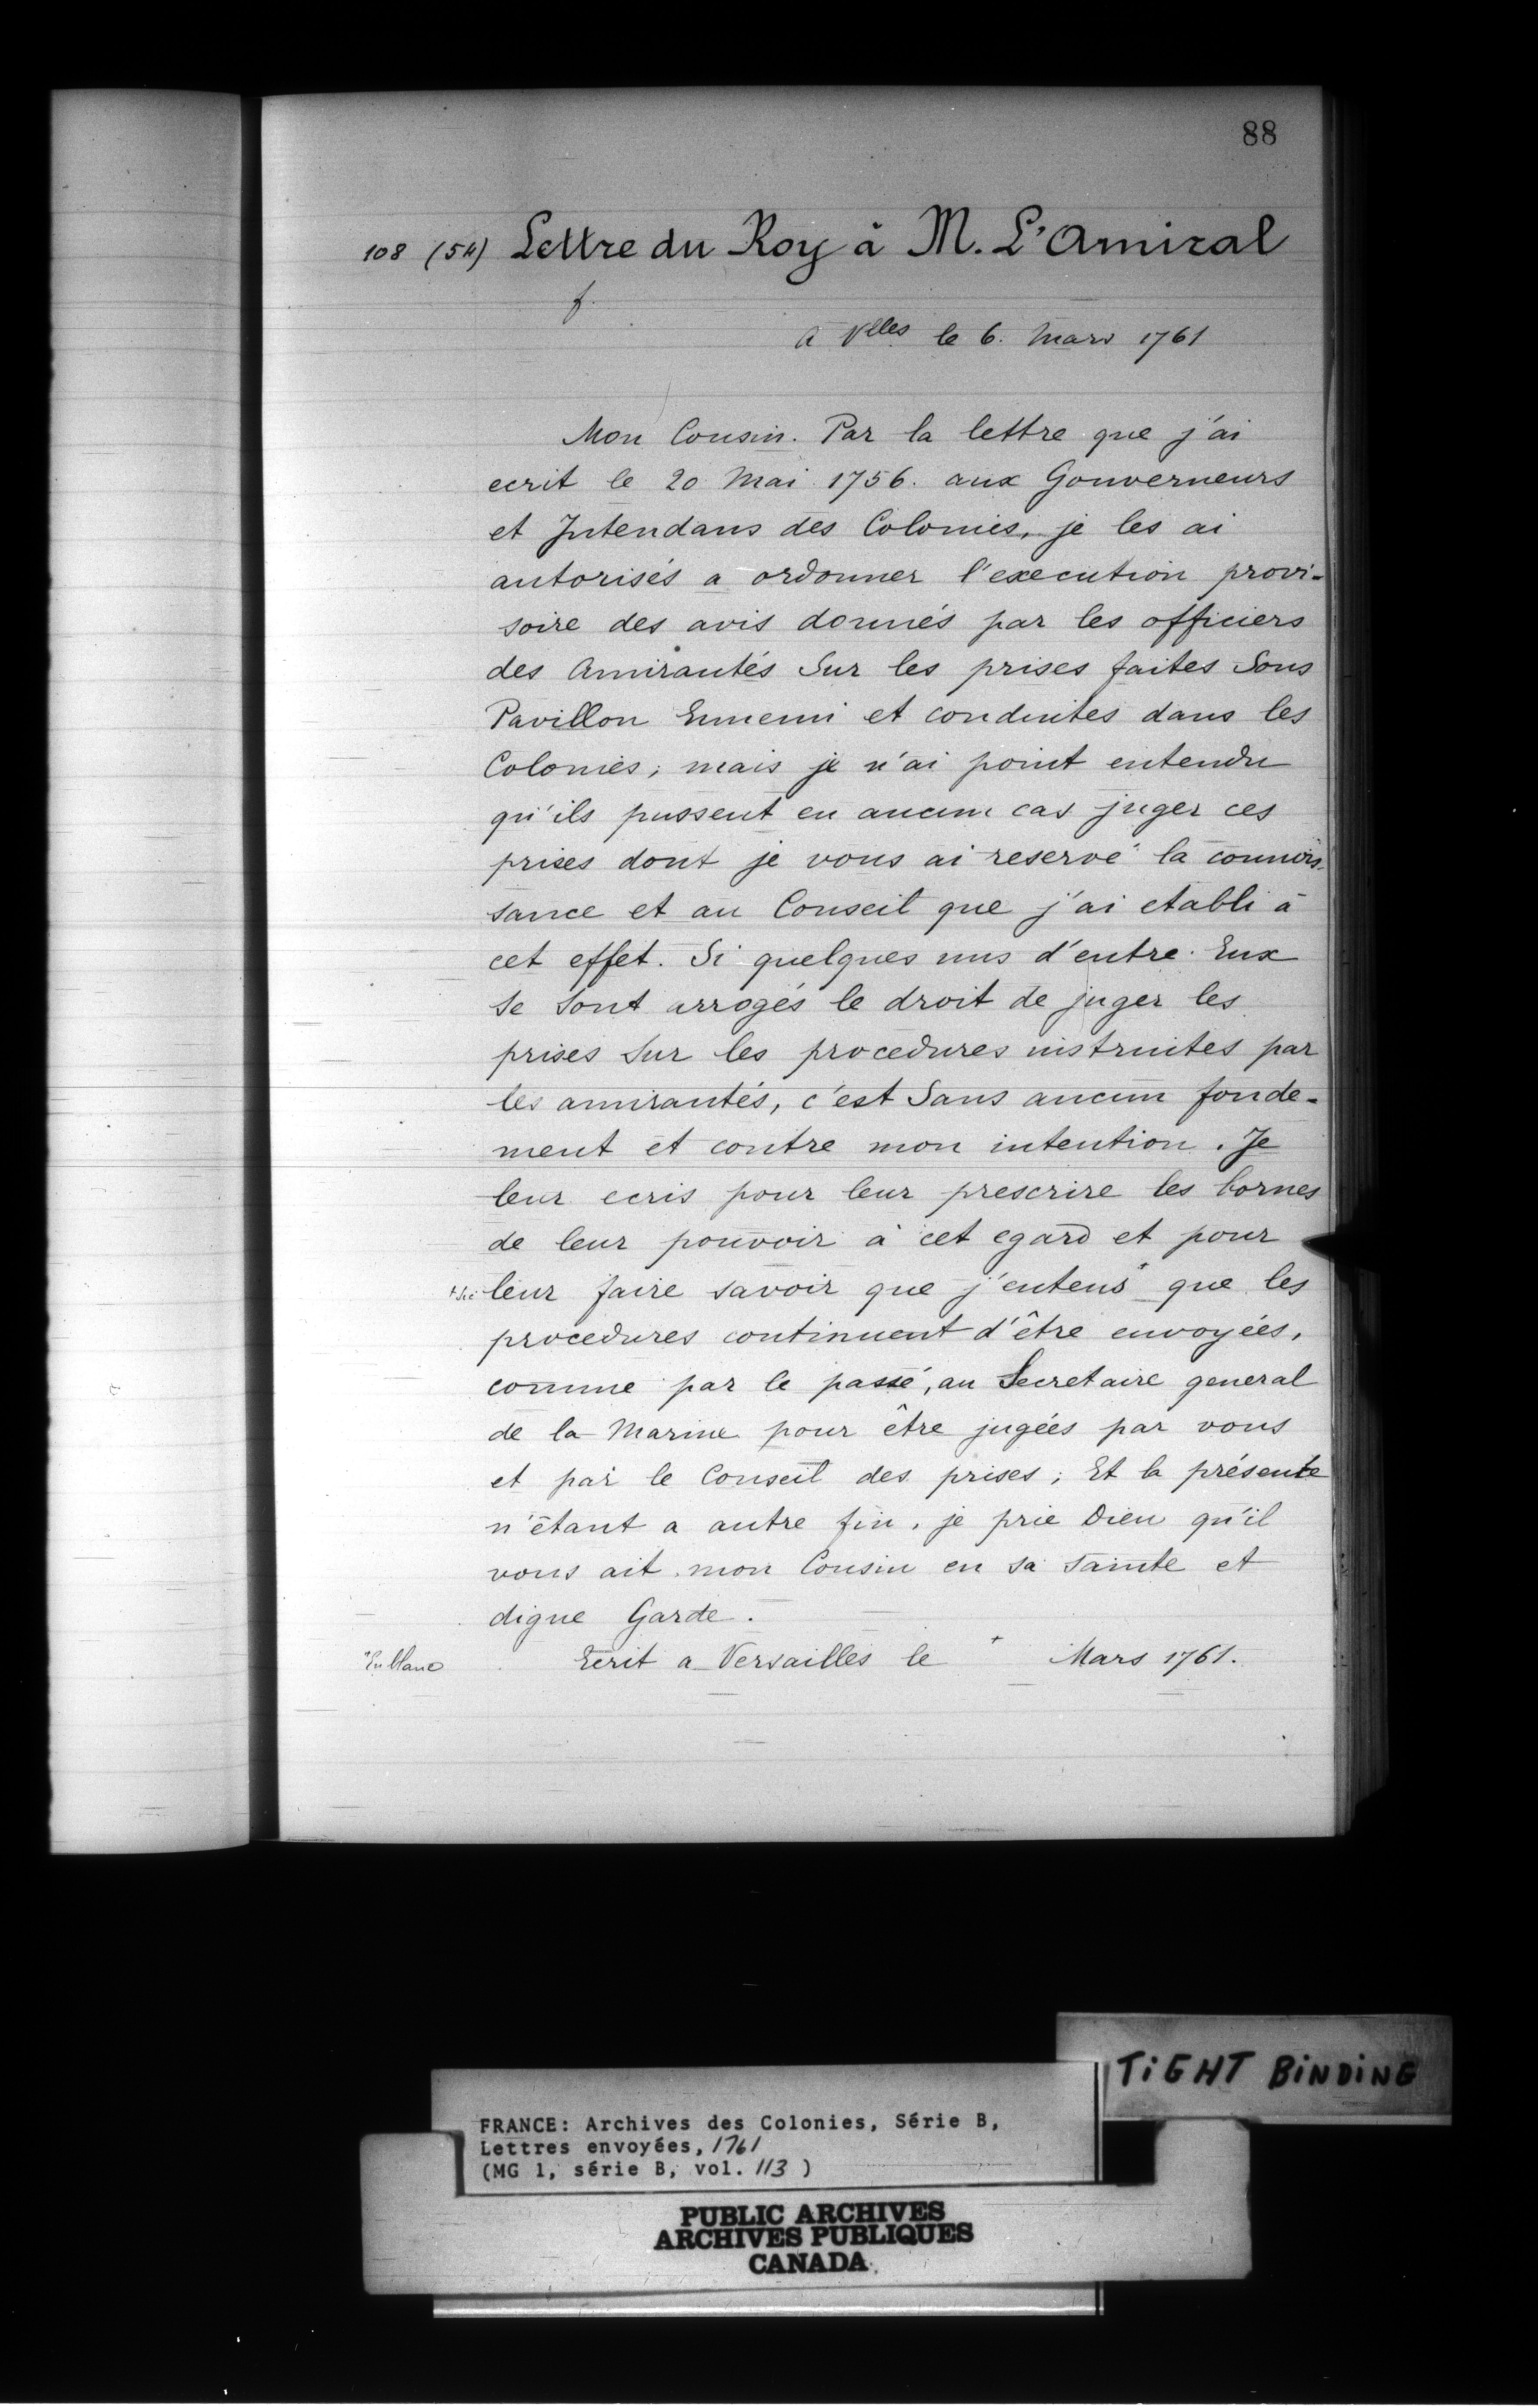 88
108 (54) Lettre du Roy à M. L'Amiral
f.
A Vlles le 6. Mars 1761
Mon Cousin. Par la lettre que j'ai
ecrit le 20 Mai 1756. aux Gouverneurs
et Intendans des Colonies, je les ai
autorisés a ordonner l'execution provi-
soire des avis donnés par les officiers
des Amirautés Sur les prises faites Sous
Pavillon Ennemi et conduites dans les
Colonies; mais je n'ai point entendu
qu'ils pussent en aucun cas juger ces
prises dont je vous ai reservé la connois-
sance et au Conseil que j'ai etabli à
cet effet. Si quelques uns d'entre Eux
Se Sont arrogés le droit de juger les
prises Sur les procedures instruites par
les amirautés, c'est Sans aucun fonde-
ment et contre mon intention. Je
leur ecris pour leur prescrire les bornes
de leur pouvoir à cet egard et pour
+Sic leur faire savoir que j'entens+ que les
procedures continuent d'être envoyées,
comme par le passé, au Secretaire general
de la Marine pour être jugées par vous
et par le Conseil des prises; Et la présente
n'étant a autre fin, je prie Dieu qu'il
vous ait mon Cousin en sa sainte et
digne Garde.
+En blanc Ecrit a Versailles le + Mars 1761.
TiGHT BiNDiNG
FRANCE: Archives des Colonies, Série B,
Lettres envoyées, 1761
(MG 1, série B, vol. 113 )
PUBLIC ARCHIVES
ARCHIVES PUBLIQUES
CANADA